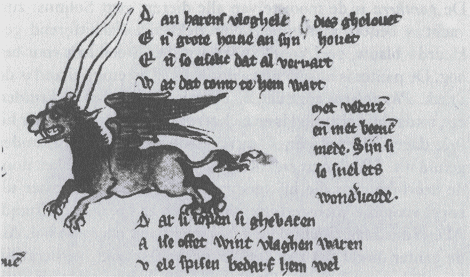 D an harent vloghele dies ghelouet
E ñ grote horne an sijn houet
E ñ so eiselic dat al vervart
W at dat comt te hem wart
met vederē
eñ met beenē
mede. Sijn si
so snel ets
D at si lopen si ghebaren
A lse offet wint vlaghen waren
v ele spisen bedarf hem wel